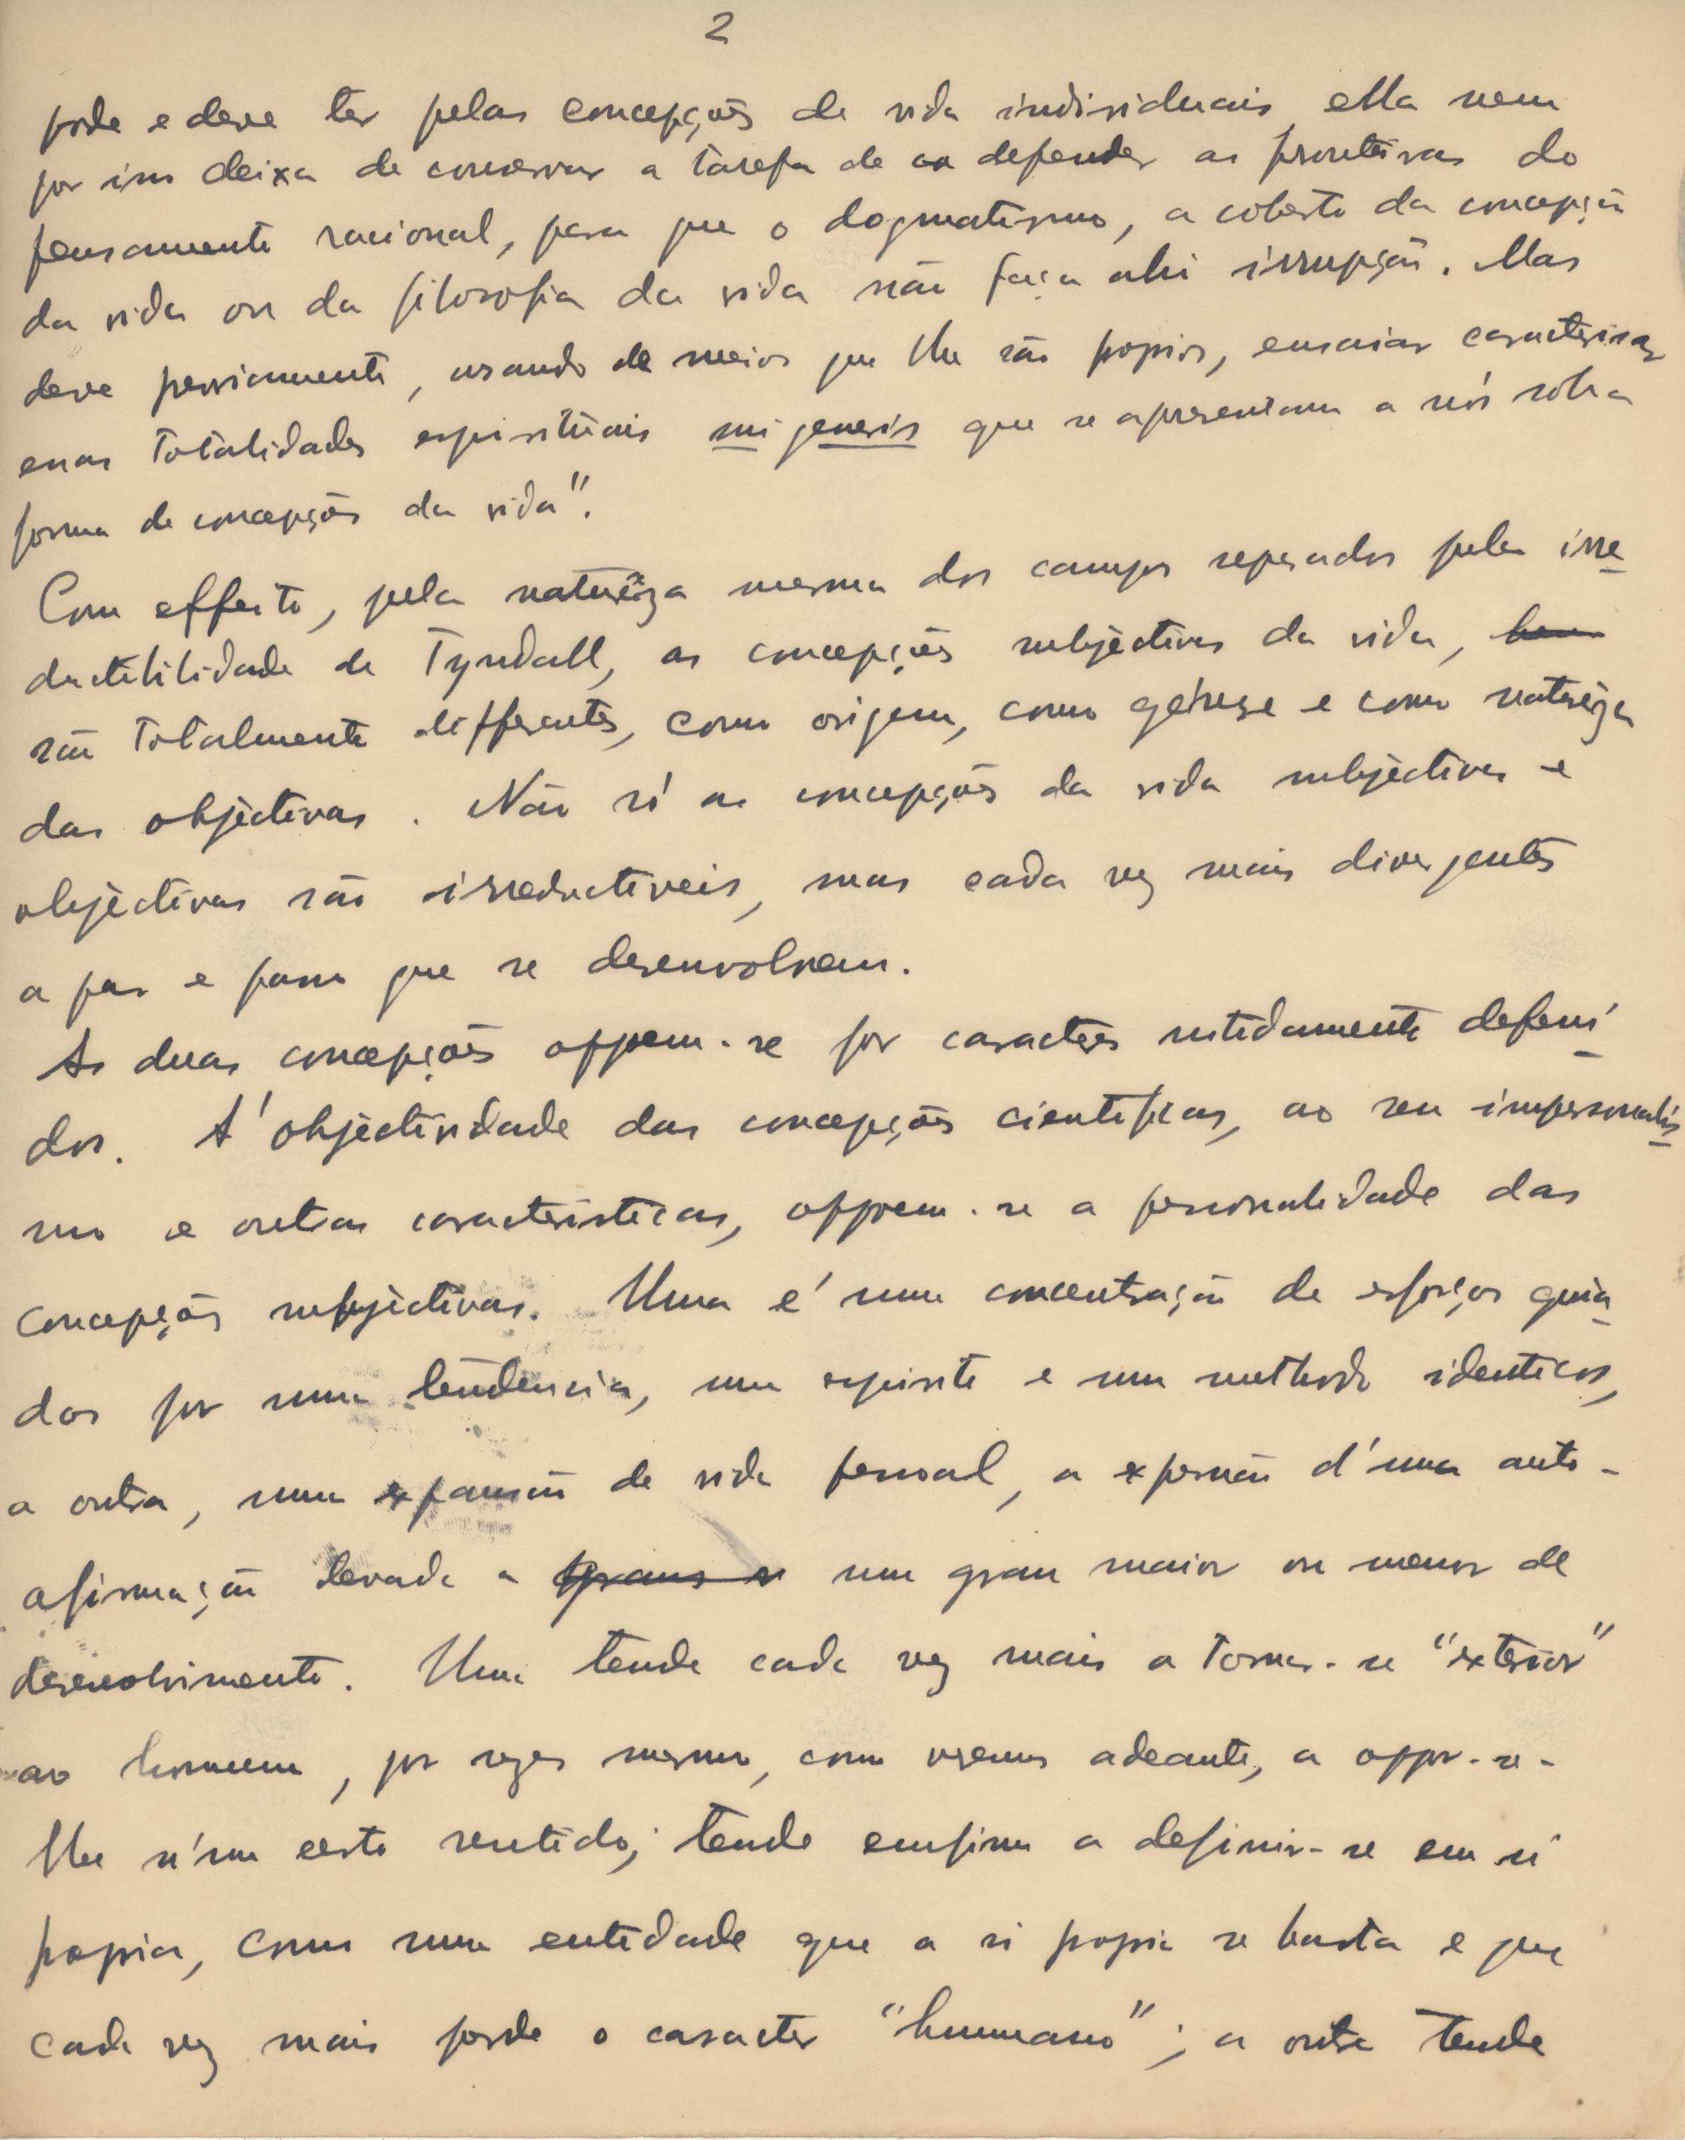 2
pode e deve ter pelas concepções de vida individuais, ella nem
por isso deixa de conservar a tarefa de defender as fronteiras do
pensamento racional, para que o dogmatismo, a coberto da concepção
da vida ou da filosofia da vida não faça ahi irrupção. Mas
deve previamente, usando de meios que lhe são propios, ensaiar caracterisar
essas totalidades espirituais sui generis que se apresentam a nós sob a
forma de concepções da vida".
Com effeito, pela natureza mesma dos campos separados pela irre-
ductibilidade de Tyndall, as concepções subjectivas da vida,
são totalmente differentes, como origem, como génese e como natureza
das objectivas. Não só as concepções da vida subjectivas e
objectivas são irreductiveis, mas cada vez mais divergentes
a par e passo que se desenvolvem.
As duas concepções oppoem-se por caracteres nitidamente defini-
dos. A' objectividade das concepções cientificas, ao seu impersonalis-
mo e outras caracteristicas, oppoem-se a personalidade das
concepções subjectivas. Uma é uma concentração de esforços guia-
dos por uma tendencia, um espirito e um methodo identicos,
a outra, uma expansão de vida pessoal, a expressão d'uma auto-
afirmação levada a um grau maior ou menor de
desenvolvimento. Uma tende cada vez mais a tornar-se "exterior"
ao homem, por vezes mesmo, como veremos adeante, a oppor-se-
lhe n'um certo sentido; tende emfim a definir-se em si
propia, como uma entidade que a si propia se basta e que
cada vez mais perde o caracter "humano"; a outra tende